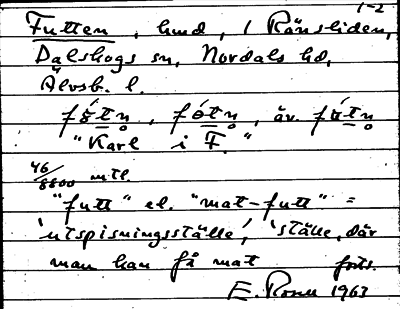 1-2
Futten, hmd, i Rånsliden,
Dalskogs sn, Nordals hd,
Älvsb. l.
, äv.
"Karl i F."
46/8800 mtl.
"futt" el. "mat-futt" =
'utspisningsställe', 'ställe, där
man kan få mat forts.
E. 1963